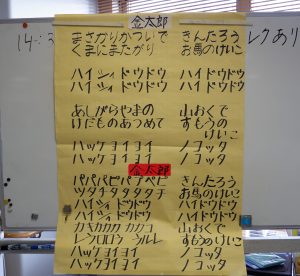 金太郎
14:3
レクあり
まさかりかついで きんたろう
くまにまたがり お馬のけいこ
ハイシィドウドウ ハイドウドウ
ハイシィドウドウ ハイドウドウ
あしがらやまの 山おくで
けだものあつめて すもうの
けいこ
ハッケヨイヨイ ノコッタ
ハッケヨイヨイ ノコッタ
金太郎
パパパパピパテペピ きんたろう
ツタチタタタタチ お馬のけいこ
ハイシィドウドウ ハイドウドウ
ハイシィドウドウ ハイドウドウ
カキカカカ カカコ 山おくで
レラロラロ ラルレ すもうのけいこ
ハッケヨイヨイ ノコッタ
ハッケヨイヨイ ノコッタ